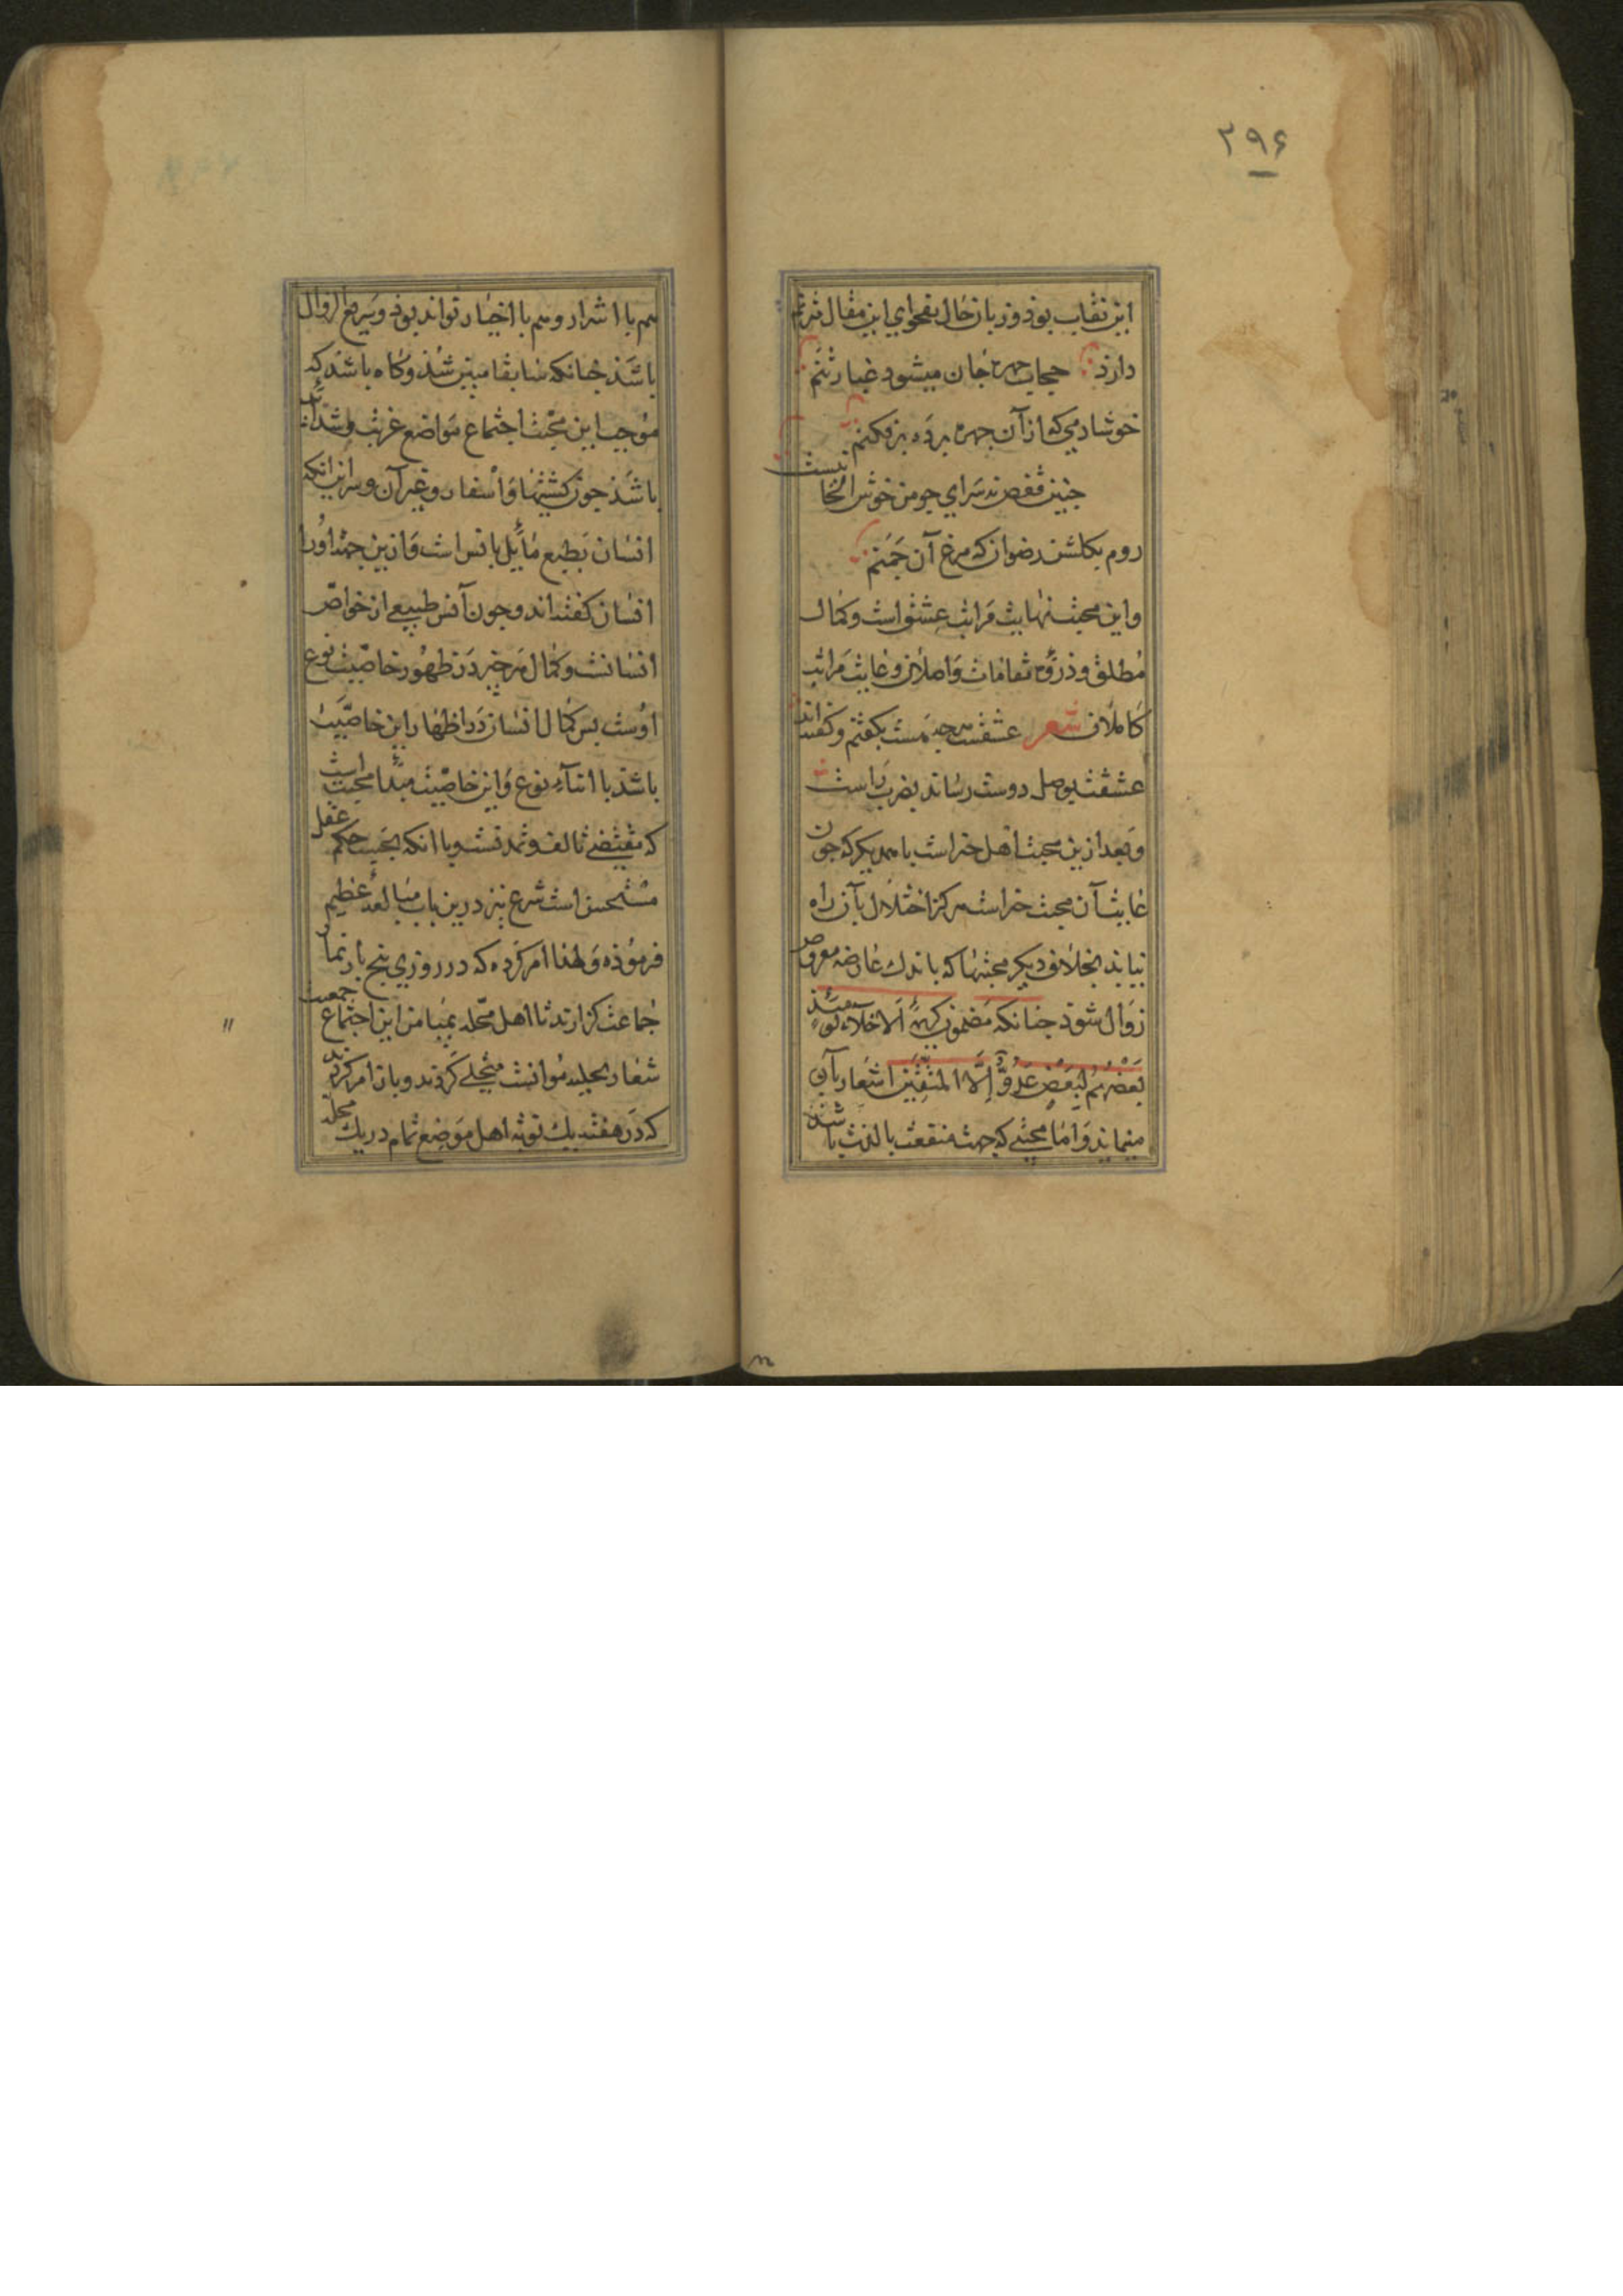 ۲۹۶
این نقاب بود و زبان حال بفحوای این مقال مترنم
دارد حجاب جهره جان میشود غبار تنم
خوشا دمی که از آن جهره برده برفکنم
جنین قفص نه سزای جو من خوش الحانیست
روم بکلشن رضوان که مرغ آن جمنم
و این محبت نهایت مراتب عشق است و کمال
مطلق و ذروه مقامات واصلان و غایت مراتب
کاملان شعر عشقست هرجه هست بکفتیم و کفته اند
عشقت بوصل دوست رساند بضرب راست
و بعد ازین محبت اهل خیر است با همدیکر که جون
غایت آن محبت خیر است هرکز اختلال بآن راه
نیابد بخلاف دیکر محبتها که باندک عارضه معروض
زوال شود جنانکه مضمون کریمه اَلاَخلاّءُ یَومَئذٍ
بَعْضُهُم لِبَعْضٍ عَدُوٌّ اِلَّا المُتَّقِین اشعار بآن
مینماید و اما محبتی که جهت منفعت یا لذت باشد
هم با اشرار و هم با اخیار تواند بود و سریع الزوال
باشد جنانکه سابقا مبین شد و کاه باشد که
موجب این محبت اجتماع مواضع غربت و شداید
باشد جون کشتیها و اسفار و غیر آن و سر این انکه
انسان بطبع مایل بانس است و ازین جهت او را
انسان کفته اند و جون انس طبیعی از خواص
انسانست و کمال هر جیز در ظهور خاصیت نوع
اوست بس کمال انسان در اظهار این خاصیت
باشد با ابناء نوع و این خاصیت مبدأ محبت است
که مقتضی تالف و تمدنست و با انکه بحسب حکم عقل
مستحسن است شرع نیز درین باب مبالغه عظیم
فرموده و لهذا امر کرده که در روزی بنج بار نماز
جماعت کزارند تا اهل محله بمیامن این اجتماع جمعیت
شعار بحلیه موانست متحلی کردند و باز امر کردند
که در هفته یک نوبه اهل موضع تمام در یک محله